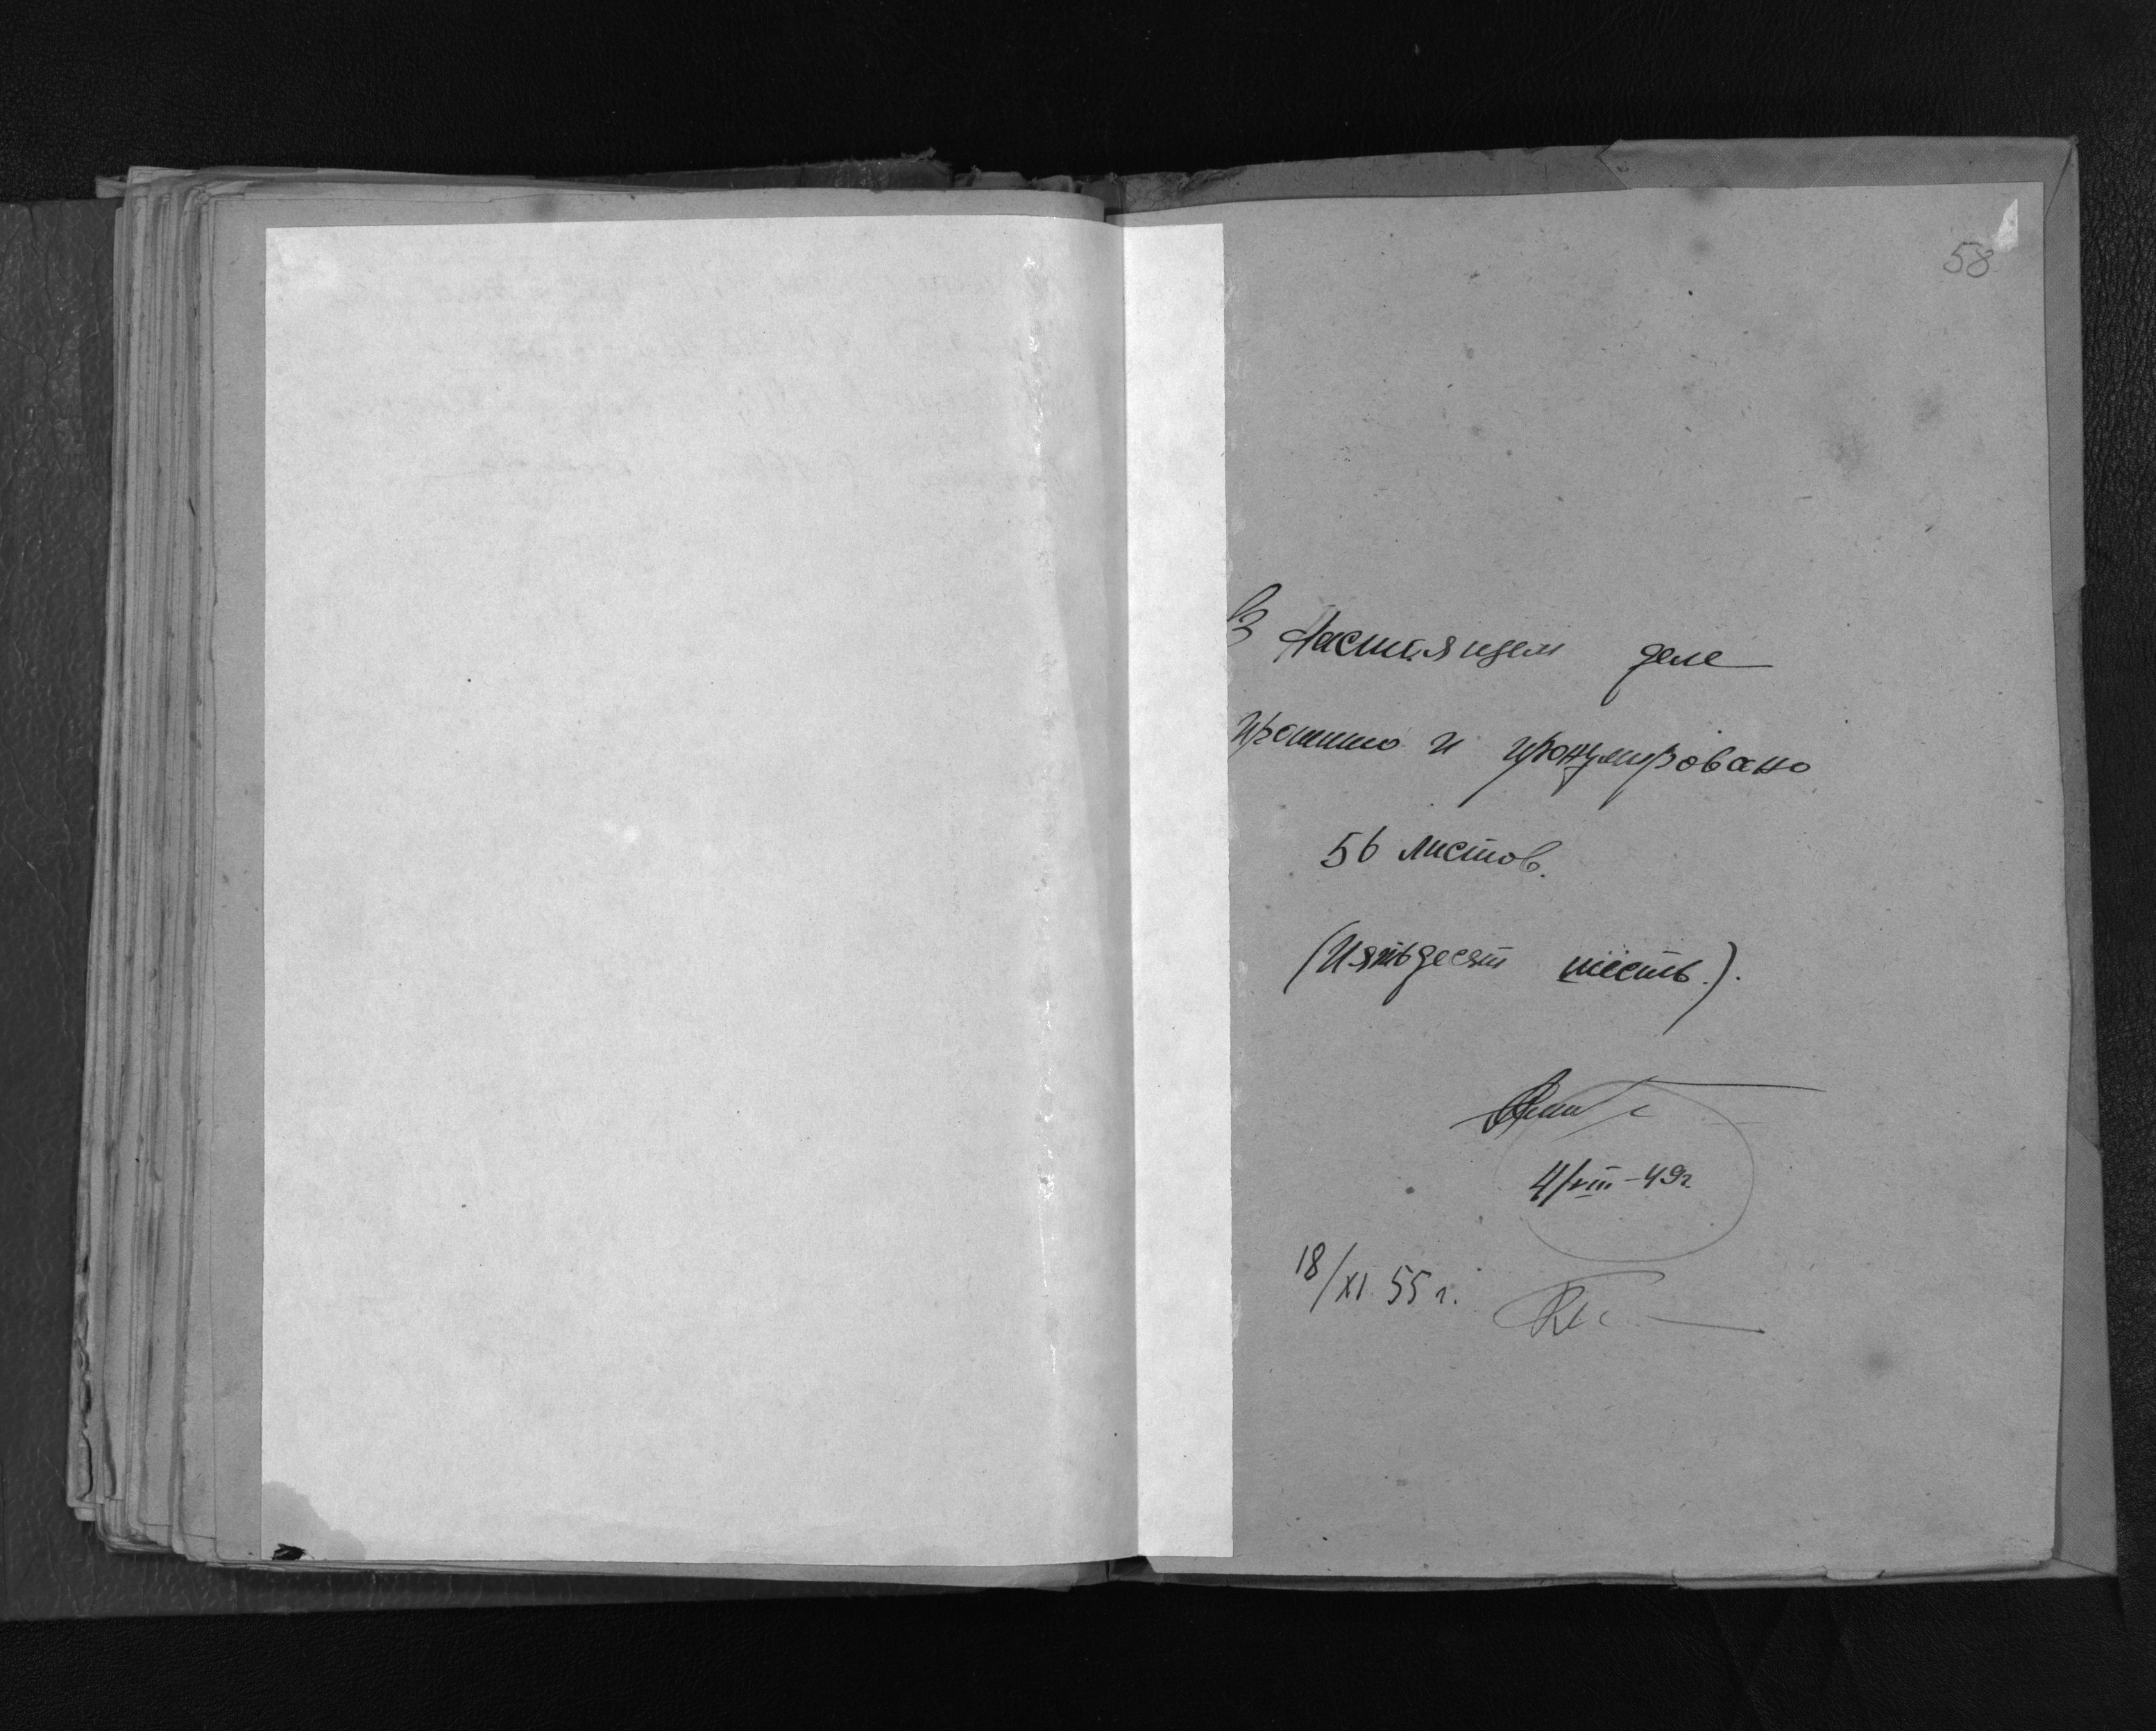 58
В Настаящем деле
прошито и пронумировано
56 листов.
(Пятьдесят шесть.).
4/VIII-49г.
18/XI 55 г.